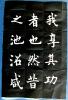 我享其功
者也然昔
之池沼咸